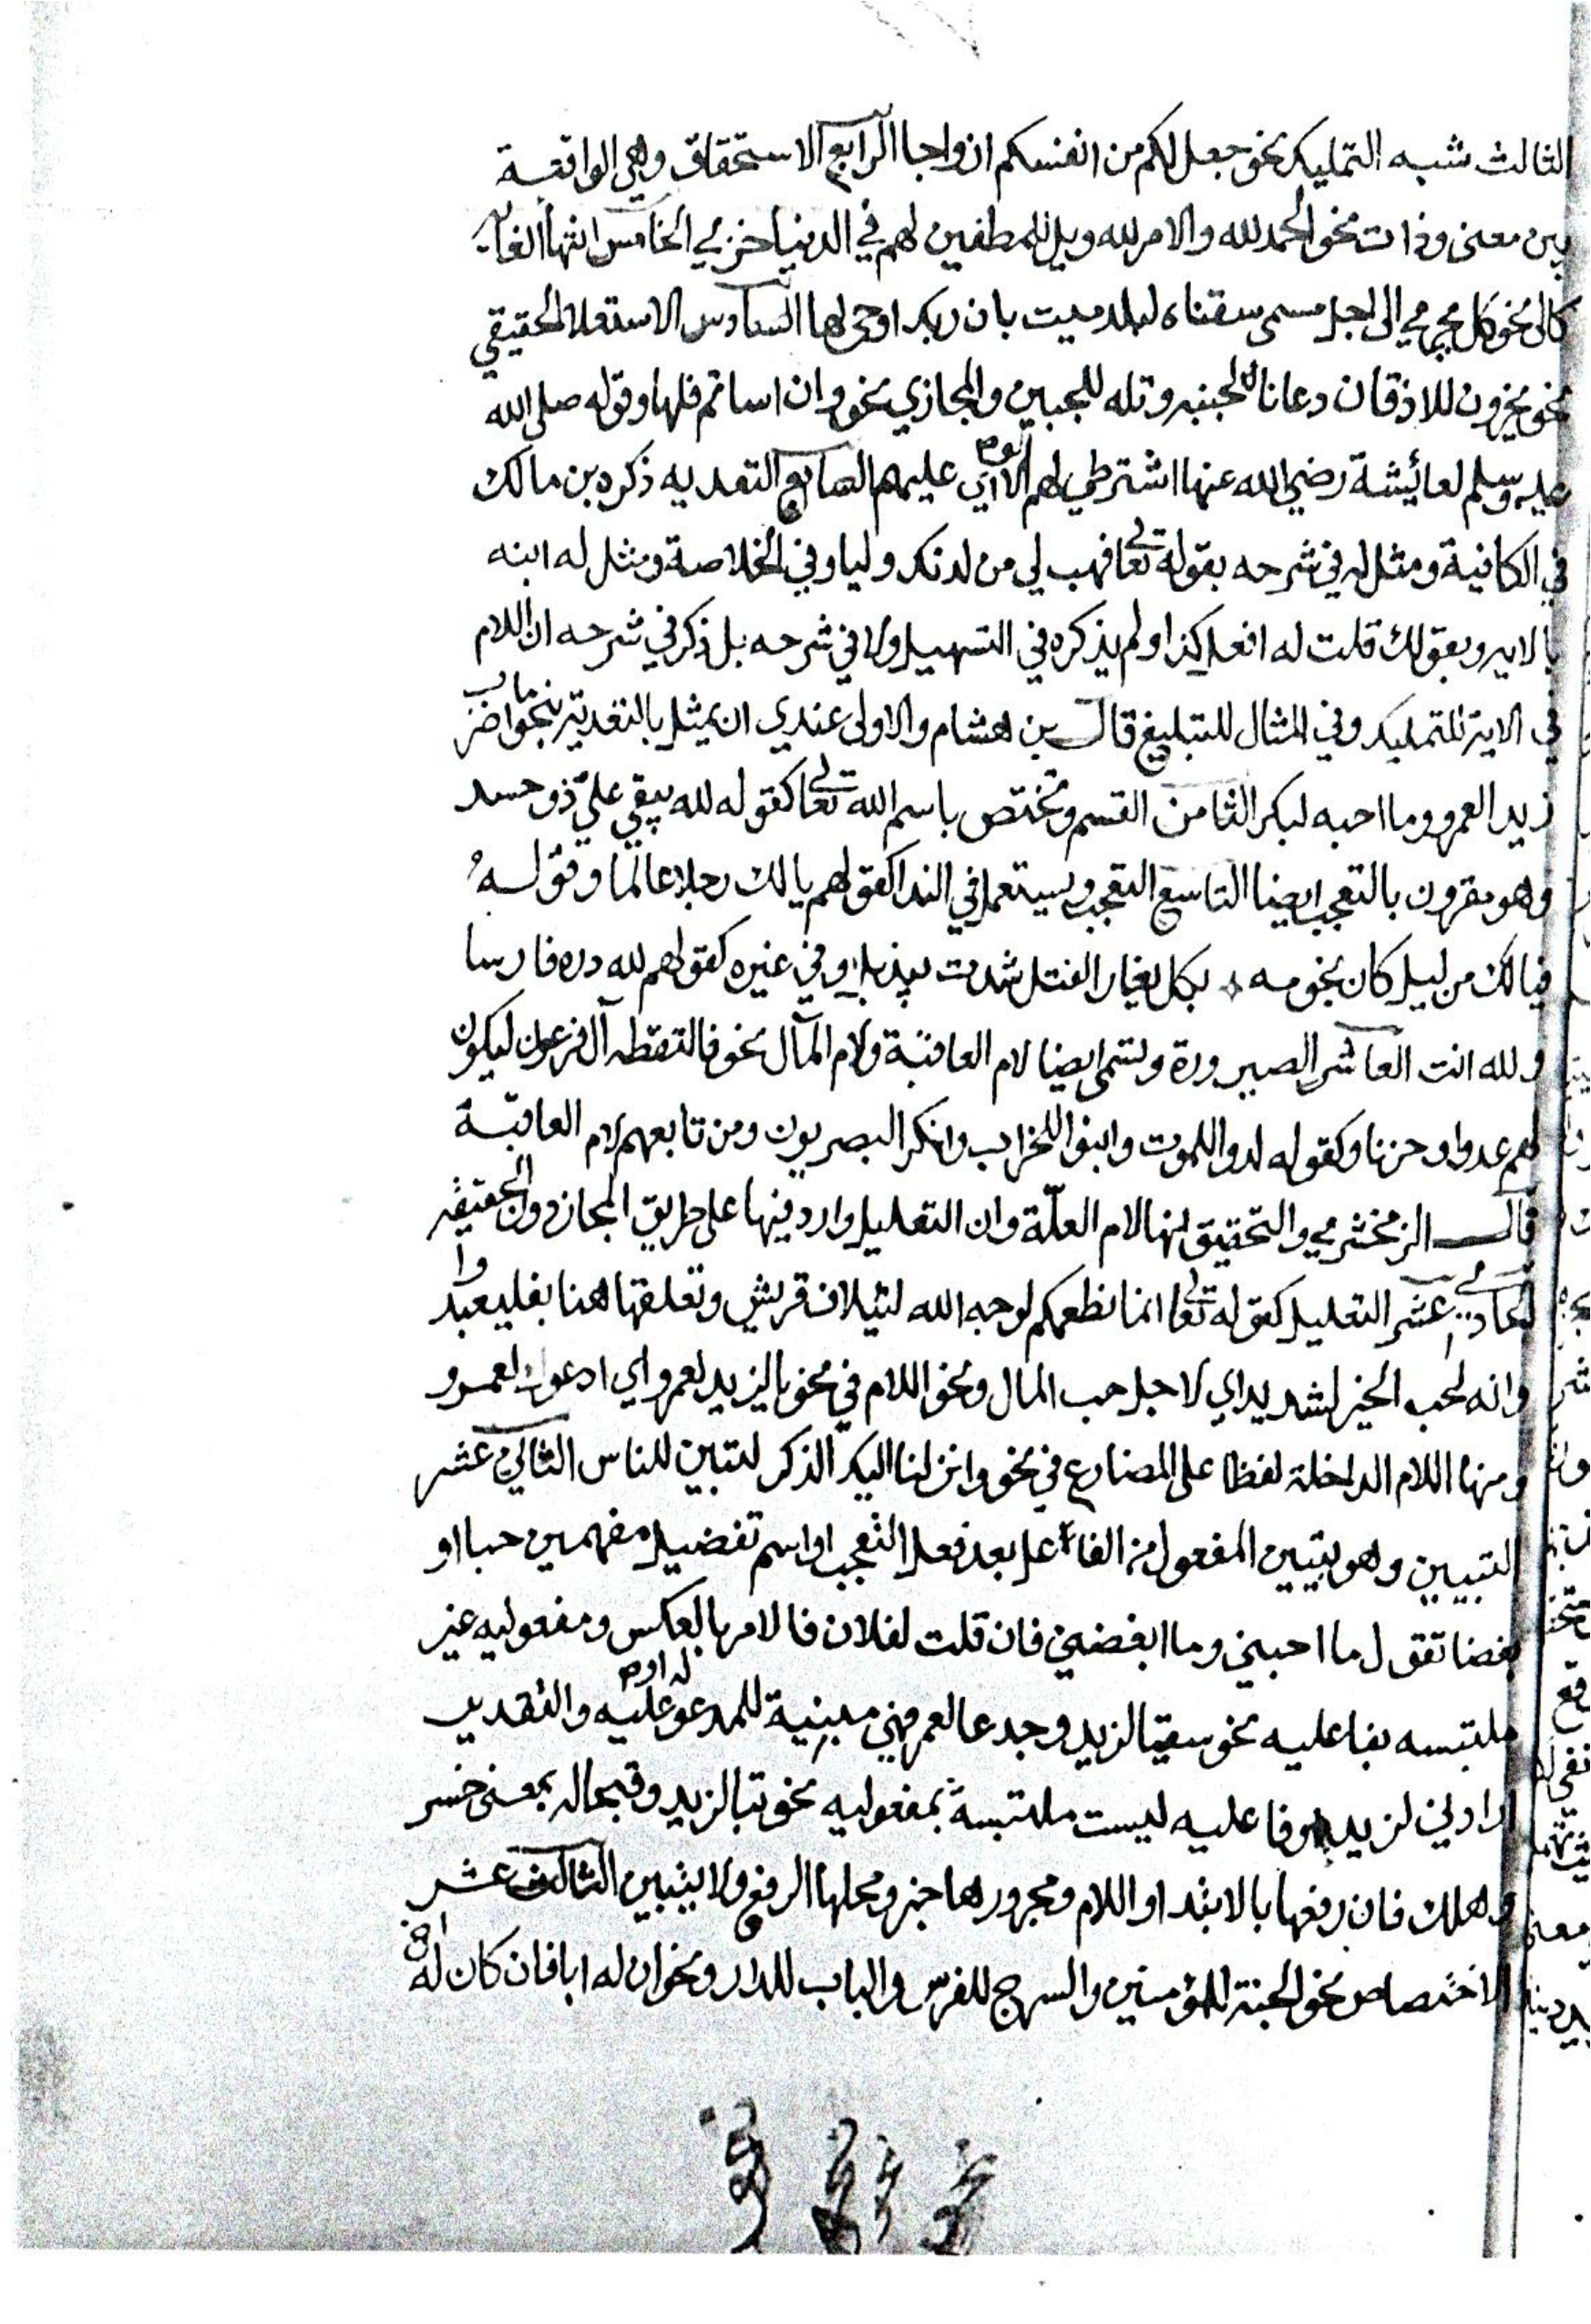 الثالث شبه التمليك نحو جعل لكم من انفسكم ازواجا الرابع الاستحقاق وهي الواقعة
بين معنى وذات نحو الحمد لله والامر لله وويل للمطففين لهم في الدنيا خزي الخامس انتهاء الغاية
كالى نحو كل يجري الى اجل مسمى سقناه لبلد ميت بان ربك اوحى لها السادس الاستعلا الحقيقي
نحو يخرون للاذقان دعانا لجنبه وتله للجبين والمجازي نحو وان اساتم فلها وقوله صلى الله
عليه وسلم لعائيشة رضي الله عنها اشترطي لهم الولاء اي عليهم السابع التعديه ذكره بن مالك
في الكافية ومثل له في شرحه بقوله تعالى فهب لي من لدنك وليا وفي الخلاصة ومثل له ابنه
بالايه وبقولك قلت له افعل كذا ولم يذكره في التسهيل ولا في شرحه بل ذكر في شرحه ان اللام
في الاية للتمليك وفي المثال للتبليغ قال بن هشام والاولى عندي ان يمثل بالتعدية بنحو ما اضرب
زيدا لعمرو وما احبه لبكر الثامن القسم وتختص باسم الله تعالى كقوله لله يبقي على ذو حسد
وهو مقرون بالتعجب ايضا التاسع التعجب ويستعمل في الندا كقولهم يا لك رجلا عالما وقوله
فيالك من ليل كان نجومه بكل مغار الفتل شدت بيذبل وفي غيره كقولهم لله دره فارسا
ولله انت العاشر الصيرورة وتسمى ايضا لام العاقبة ولام المآل نحو فالتقطه آل فرعون ليكون
لهم عدوا وحزنا وكقوله لدوا للموت وابنوا للخراب وانكر البصريون ومن تابعهم لام العاقبة
قال الزمخشري والتحقيق انها لام العلّة وان التعليل وارد فيها على طريق المجاز دون الحقيقه
الحادي عشر التعليل كقوله تعالى انما نطعمكم لوجه الله لئيلاف قريش وتعلقها هنا بفليعبدوا
وانه لحب الخير لشديد اي لاجل حب المال ونحو اللام في نحو يا لزيد لعمرو اي ادعوك لعمرو
ومنها اللام الداخلة لفظا على المضارع في نحو وانزلنا اليك الذكر لتبين للناس الثاني عشر
التبيين وهو تبيين المفعول من الفاعل بعد فعل التعجب او اسم تفضيل مفهمين حبا او
بغضا تقول ما احبني وما ابغضني فان قلت لفلان فالامر بالعكس ومفعوليه غير
ملتبسه بفاعليه نحو سقيا لزيد وجدعا لعمرو فهي مبينية للمدعو له او عليه والتقدير
ارادني لزيد وفاعليه ليست ملتبسة بمفعوليه نحو تبا لزيد وقبحا له بمعنى خسر
وهلك فان رفعها بالابتدا واللام ومجرورها خبر ومحلها الرفع ولا يتبين الثالث عشر
الاختصاص نحو الجنة للمؤمنين والسرج للفرس والباب للدار ونحو ان له ابا فان كان له اخوة